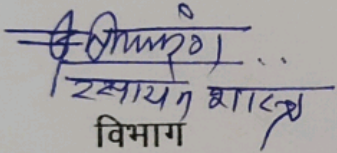 रसायन शास्त्र
विभाग